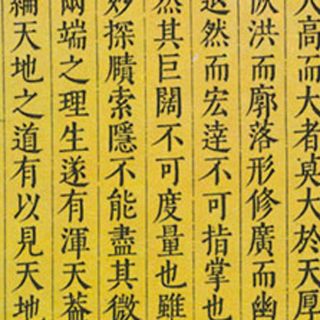 高而大者莫大於天厚
洪而廓落形修廣而幽
然而宏逹不可指掌也
然其巨闊不可度量也雖
妙探賾索隱不能盡其微
兩端之理生遂有渾天葢
綸天地之道有以見天地